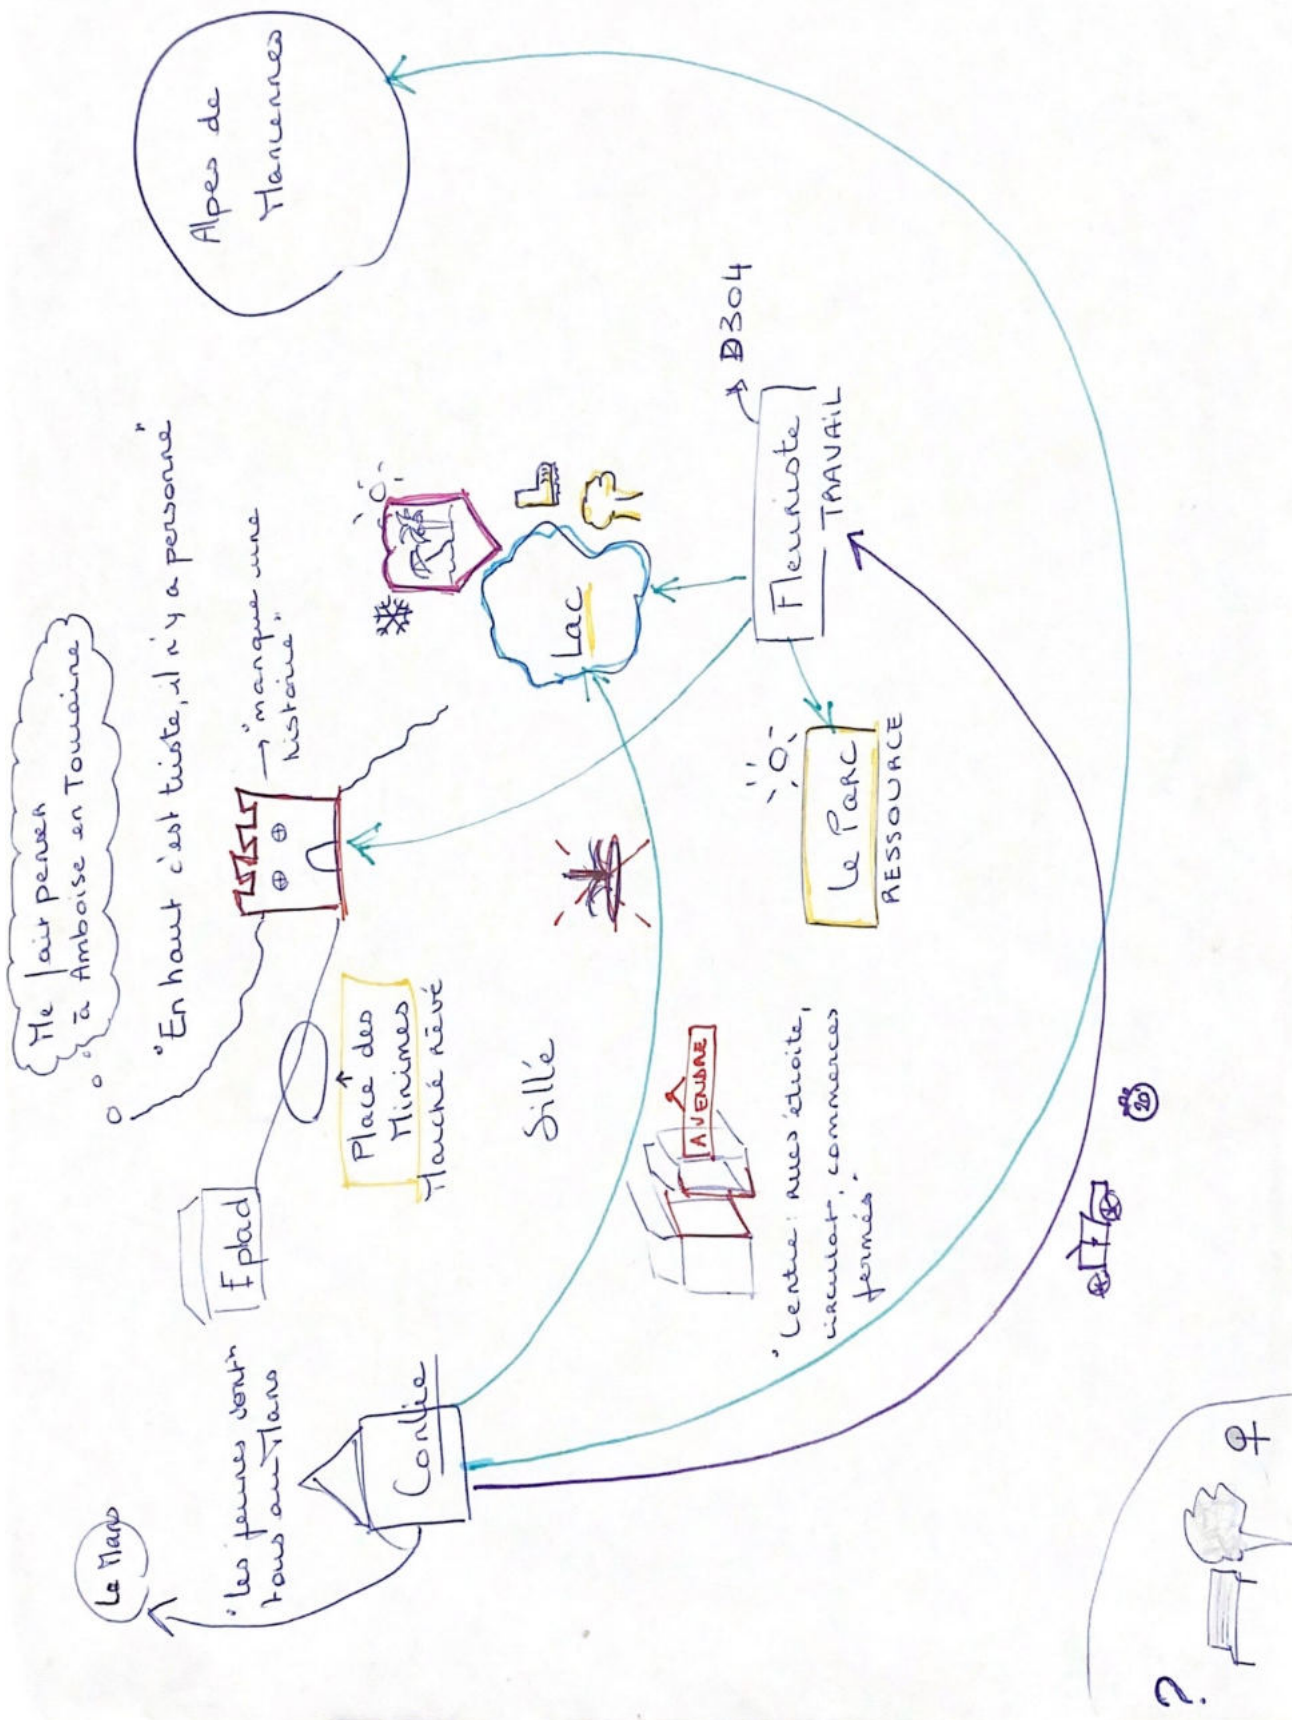 Le Mans
"Les jeunes sont"
tous au Mans
Conlie
Ephad
Me fait penser
à Amboise en Touraine
"En haut c'est triste, il n'y a personne"
→ "manque une
histoire"
Place des
Minimes
Marché rêvé
Sillé
Lac
Alpes de
Mancennes
A VENDRE
"Centre : rues étroite,
circulat°, commerces
fermés"
Le Parc
RESSOURCE
Fleuriste
TRAVAIL
D304
20'
?